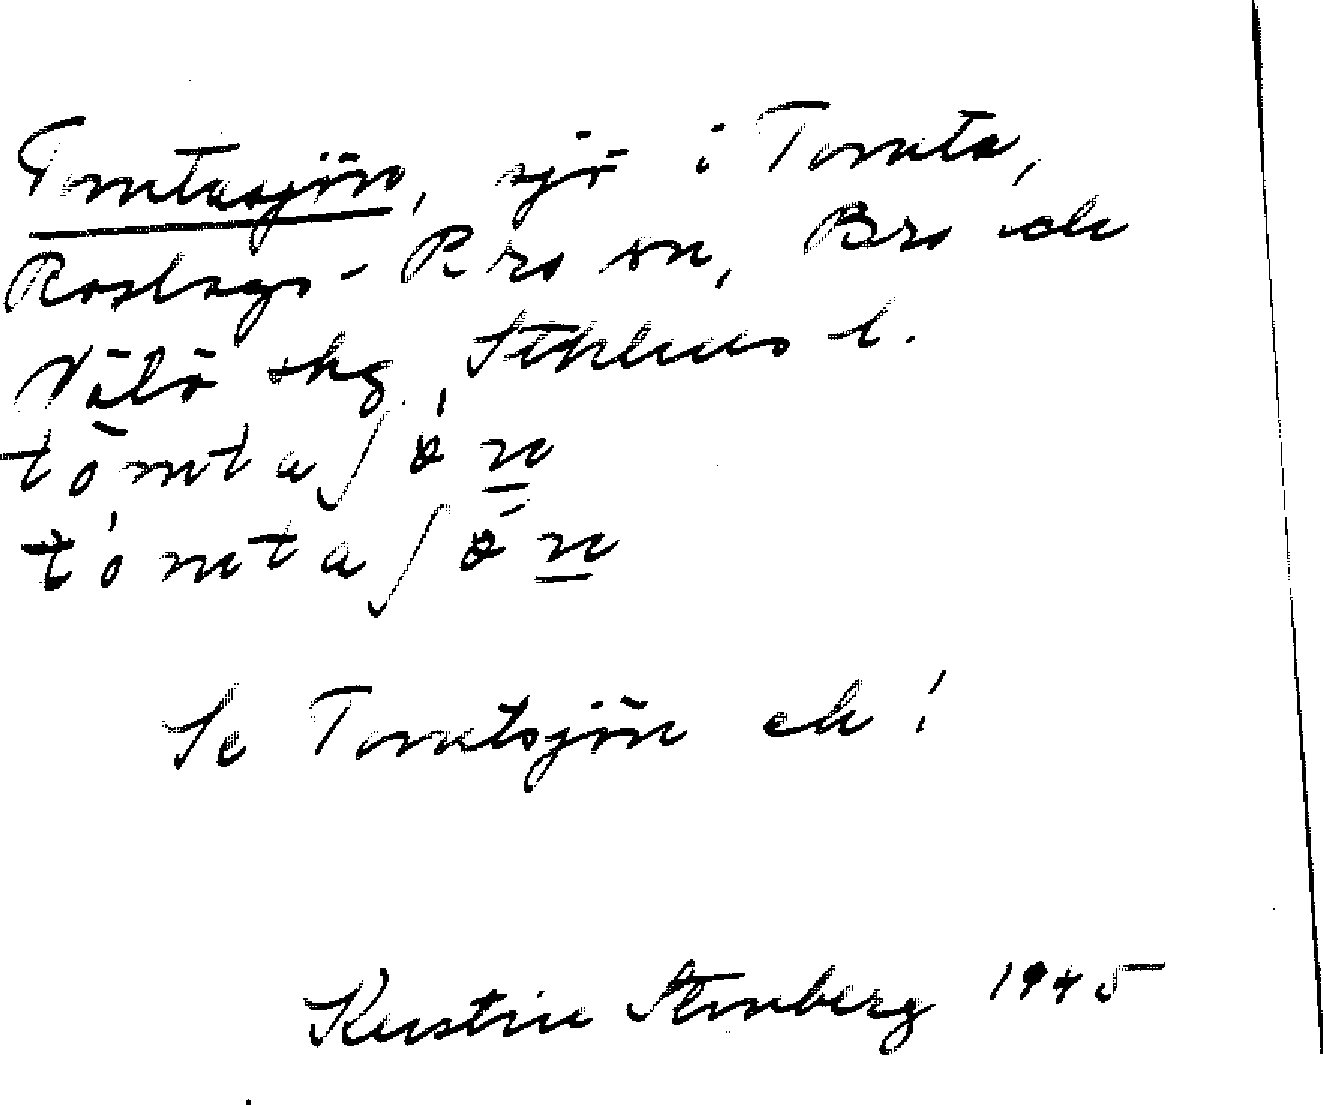 Tomtasjön, sjö i Tomta,
Roslags-Bro sn, Bro och
Vätö skg, Sthlms l.
tòmtaʃö́n
tómtaʃö̀n
Se Tomtsjön ek!
Kerstin Stenberg 1945